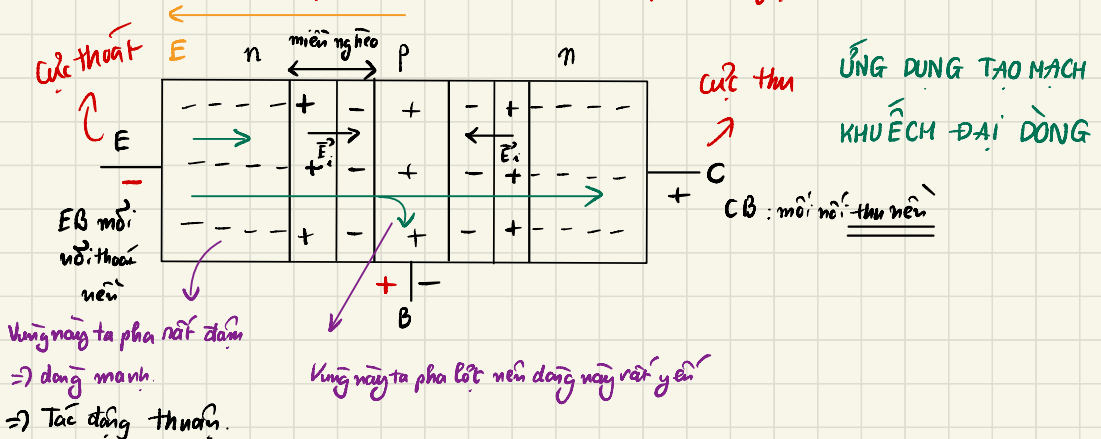 E
n
miền nghèo
P
n
Cực thoát
E
E⃗i
E⃗i
cực thu
C
ỨNG DỤNG TẠO MẠCH
KHUẾCH ĐẠI DÒNG
CB : mối nối thu nền
EB mối
nối thoát
nền
B
Vùng này ta pha rất đậm
=> dòng mạnh.
=> Tác động thuận.
Vùng này ta pha lợt nên dòng này rất yếu